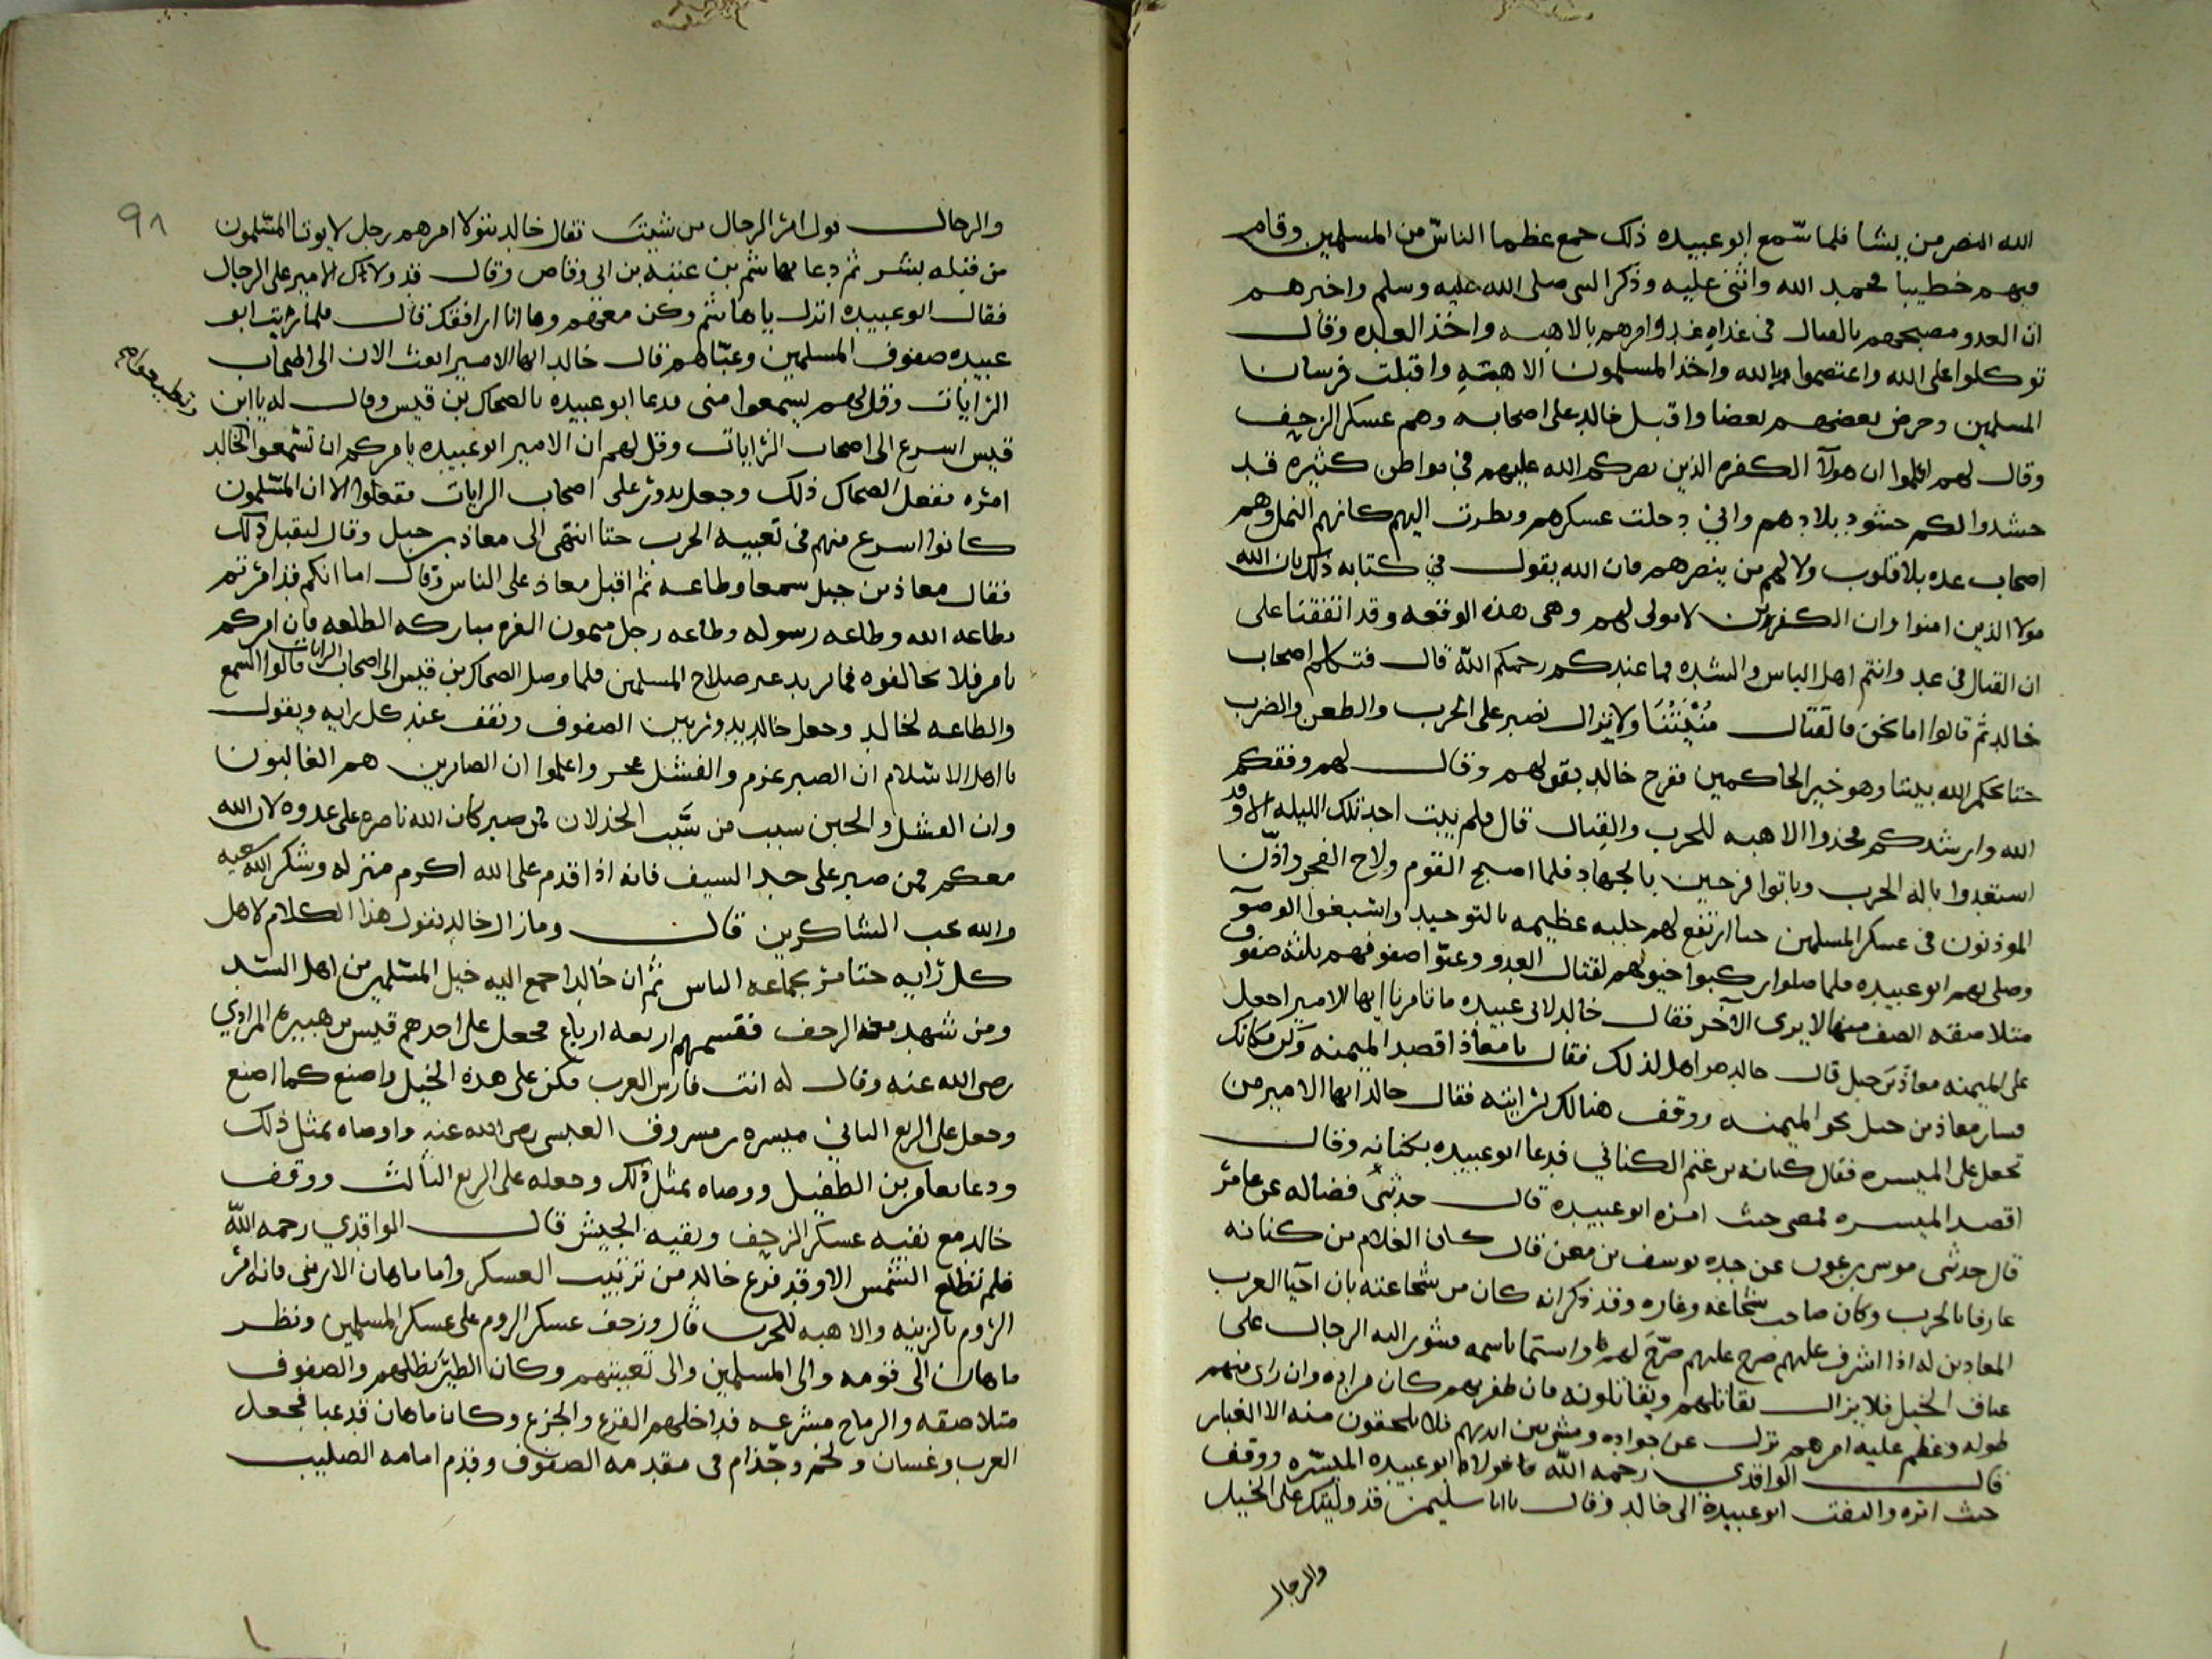 الله النصر من يشا فلما سمع ابو عبيده ذلك جمع عظما الناس من المسلمين وقام
فيهم خطيبا فحمد الله واثنى عليه وذكر النبي صلى الله عليه وسلم واخبرهم
ان العدو مصبحهم بالقتال في غداه غد وامرهم بالاهبه واخذ العده وقال
توكلوا على الله واعتصموا بالله واخذ المسلمون الاهبته واقبلت فرسان
المسلمين وحرض بعضهم بعضا واقبل خالد على اصحابه وهم عسكر الزحف
وقال لهم اعلموا ان هولآ الكفره الذين نصركم الله عليهم في مواطن كثيره قد
حشدوا لكم حشود بلادهم واني دخلت عسكرهم ونظرت اليهم كانهم النمل وهم
اصحاب عده بلا قلوب ولا لهم من ينصرهم فان الله يقول في كتابه ذلك بان الله
مولا الذين امنوا وان الكفرين لا مولى لهم وهي هذه الوقعه وقد اتفقنا على
ان القتال في غد وانتم اهل الباس والشده فما عندكم رحمكم الله قال فتكلم اصحاب
خالد ثم قالوا اما نحن فالقتال منيتنا ولا نزال نصبر على الحرب والطعن والضرب
حتا يحكم الله بيننا وهو خير الحاكمين ففرح خالد بقولهم وقال لهم وفقكم
الله وارشدكم فخذوا الاهبه للحرب والقتال قال فلم يبت احد تلك الليله الا وقد
استعدوا باله الحرب وباتوا فرحين بالجهاد فلما اصبح القوم ولاح الفجر واذن
الموذنون في عسكر المسلمين حتا ارتفع لهم جلبه عظيمه بالتوحيد واشبغوا الوضو
وصلى بهم ابو عبيده فلما صلوا ركبوا خيولهم لقتال العدو وعبوا صفوفهم ثلثه صفوف
متلاصقه الصف منها لا يرى الآخر فقال خالد لابي عبيده ما تامرنا ايها الامير اجعل
على الميمنه معاذ بن جبل قال خالد هو اهل لذلك فقال يا معاذ اقصد الميمنه وكن مكانك
فسار معاذ بن جبل نحو الميمنه ووقف هنالك برايته فقال خالد ايها الامير من
تجعل على الميسره فقال كنانه بن غنم الكناني فدعا ابو عبيده بكنانه وقال
اقصد الميسره فمضى حيث امره ابو عبيده قال حدثني فضاله عن عامر
قال حدثني موسى بن عون عن جده يوسف بن معن قال كان الغلام من كنانه
عارفا بالحرب وكان صاحب شجاعه وغاره وقد ذكر انه كان من شجاعته بان احيا العرب
المعادين له اذا اشرف عليهم صرح عليهم صرخ لهم واستما باسمه فتثور اليه الرجال على
عتاف الخيل فلا يزال يقاتلهم ويقاتلونه فان ظفر بهم كان مراده وان راى منهم
طوله وعظم عليه امرهم نزل عن جواده ومشى بين ايديهم فلا يلحقون منه الا الغبار
قال الواقدي رحمه الله فلما ولاه ابو عبيده الميسره ووقف
حيث امره والتفت ابو عبيدة الى خالد وقال يا ابا سليمن قد وليتك على الخيل
والرجال
٩٨
والرجال فول امر الرجال من شيت فقال خالد سنولا امرهم رجل لا يوتا المسلمون
من قبله بشر ثم دعا بهاشم بن عتبه بن ابي وقاص وقال قد ولاك الامير على الرجال
فقال ابو عبيده انزل يا هاشم وكن معهم وها انا ارافقك قال فلما رتب ابو
عبيده صفوف المسلمين وعباهم قال خالد ايها الامير ابعث الان الى اصحاب
الرايات وقل لهم يسمعوا مني فدعا ابو عبيده بالضحاك بن قيس وقال له يا ابن
قيس اسرع الى اصحاب الرايات وقل لهم ان الامير ابو عبيده يامركم ان تسمعوا لخالد
امره ففعل الضحاك ذلك وجعل يدور على اصحاب الرايات ففعلوا الا ان المسلمون
كانوا اسرع منهم في تعبيه الحرب حتا انتهى الى معاذ بن جبل وقال ليقبل ذلك
فقال معاذ بن جبل سمعا وطاعه ثم اقبل معاذ على الناس وقال اما انكم قد امرتم
بطاعه الله وطاعه رسوله وطاعه رجل ميمون الغره مباركه الطلعه فان امركم
بامر فلا تخالفوه فما يريد غير صلاح المسلمين فلما وصل الضحاك بن قيس الى اصحاب الرايات قالوا السمع
والطاعه لخالد وجعل خالد يدور بين الصفوف ويقف عند كل رايه ويقول
يا اهل الاسلام ان الصبر عزم والفشل عجز واعلموا ان الصابرين هم الغالبون
وان الفشل والجبن سبب من سبب الخذلان فمن صبر كان الله ناصره على عدوه لان الله
معكم فمن صبر على حد السيف فانه اذا قدم على الله اكرم منزله وشكر الله سعيه
والله يحب الشاكرين قال وما زال خالد يقول هذا الكلام لاهل
كل رايه حتا مر بجماعه الناس ثم ان خالدا جمع اليه خيل المسلمين من اهل الشده
ومن شهد معه الزحف فقسمهم اربعه ارباع فجعل على احدهم قيس بن هبيره المرادي
رضى الله عنه وقال له انت فارس العرب فكن على هذه الخيل واصنع كما اصنع
وجعل على الربع الثاني ميسره بن مسروف العبسي رضى الله عنه واوصاه بمثل ذلك
ودعا بعامر بن الطفيل ووصاه بمثل ذلك وجعله على الربع الثالث ووقف
خالد مع بقيه عسكر الزحف وبقيه الجيش قال الواقدي رحمه الله
فلم تطلع الشمس الا وقد فرغ خالد من ترتيب العسكر واما ماهان الارمني فانه امر
الروم بالزينه والاهبه للحرب قال وزحف عسكر الروم على عسكر المسلمين ونظر
ماهان الى قومه والى المسلمين والى تعبيتهم وكان الطير يظلهم والصفوف
متلاصقه والرماح مشرعه فداخلهم الفزع والجزع وكان ماهان قد عبا فجعل
العرب وغسان ولخم وجذام في مقدمه الصفوف وقدم امامه الصليب